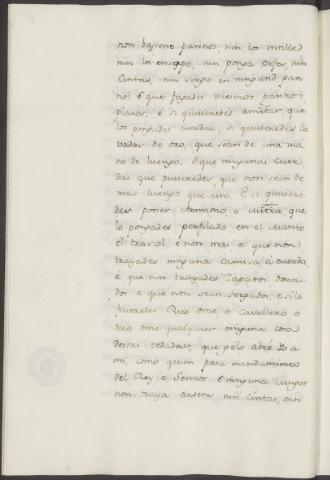 non bastone pannos, nin los entalle
nin lo ensepe, nin ponga orfes nin
Cintas, nin sirgo en ningund pan
no: E que fagades vuestros pannos
planos; e si quisieredes que
los pongades cuerdas, si quisieredes la
vadas de oro, que sean de una ma
no de luengo. E que ningunas cuer
das que pusieredes que non sean de
mas luengo que esto. E si quisiere
des poner Arminno, o nutria que
lo pongades perfilado en el manto
el trascol, e non mas e que non
trayades ninguna camisa a cuerda,
e que non trayades Zapatos dora
dos e que non sean serpados; e si lo
ficieredes Rico ome, o Cavallero, o
otro ome qualquier ninguna cosa
destas vedadas, que pelo abré Yo a
mi, como quien pasa mandamiento
del Rey e Sennor. E ninguna muger
non traya nin Cintas, nin